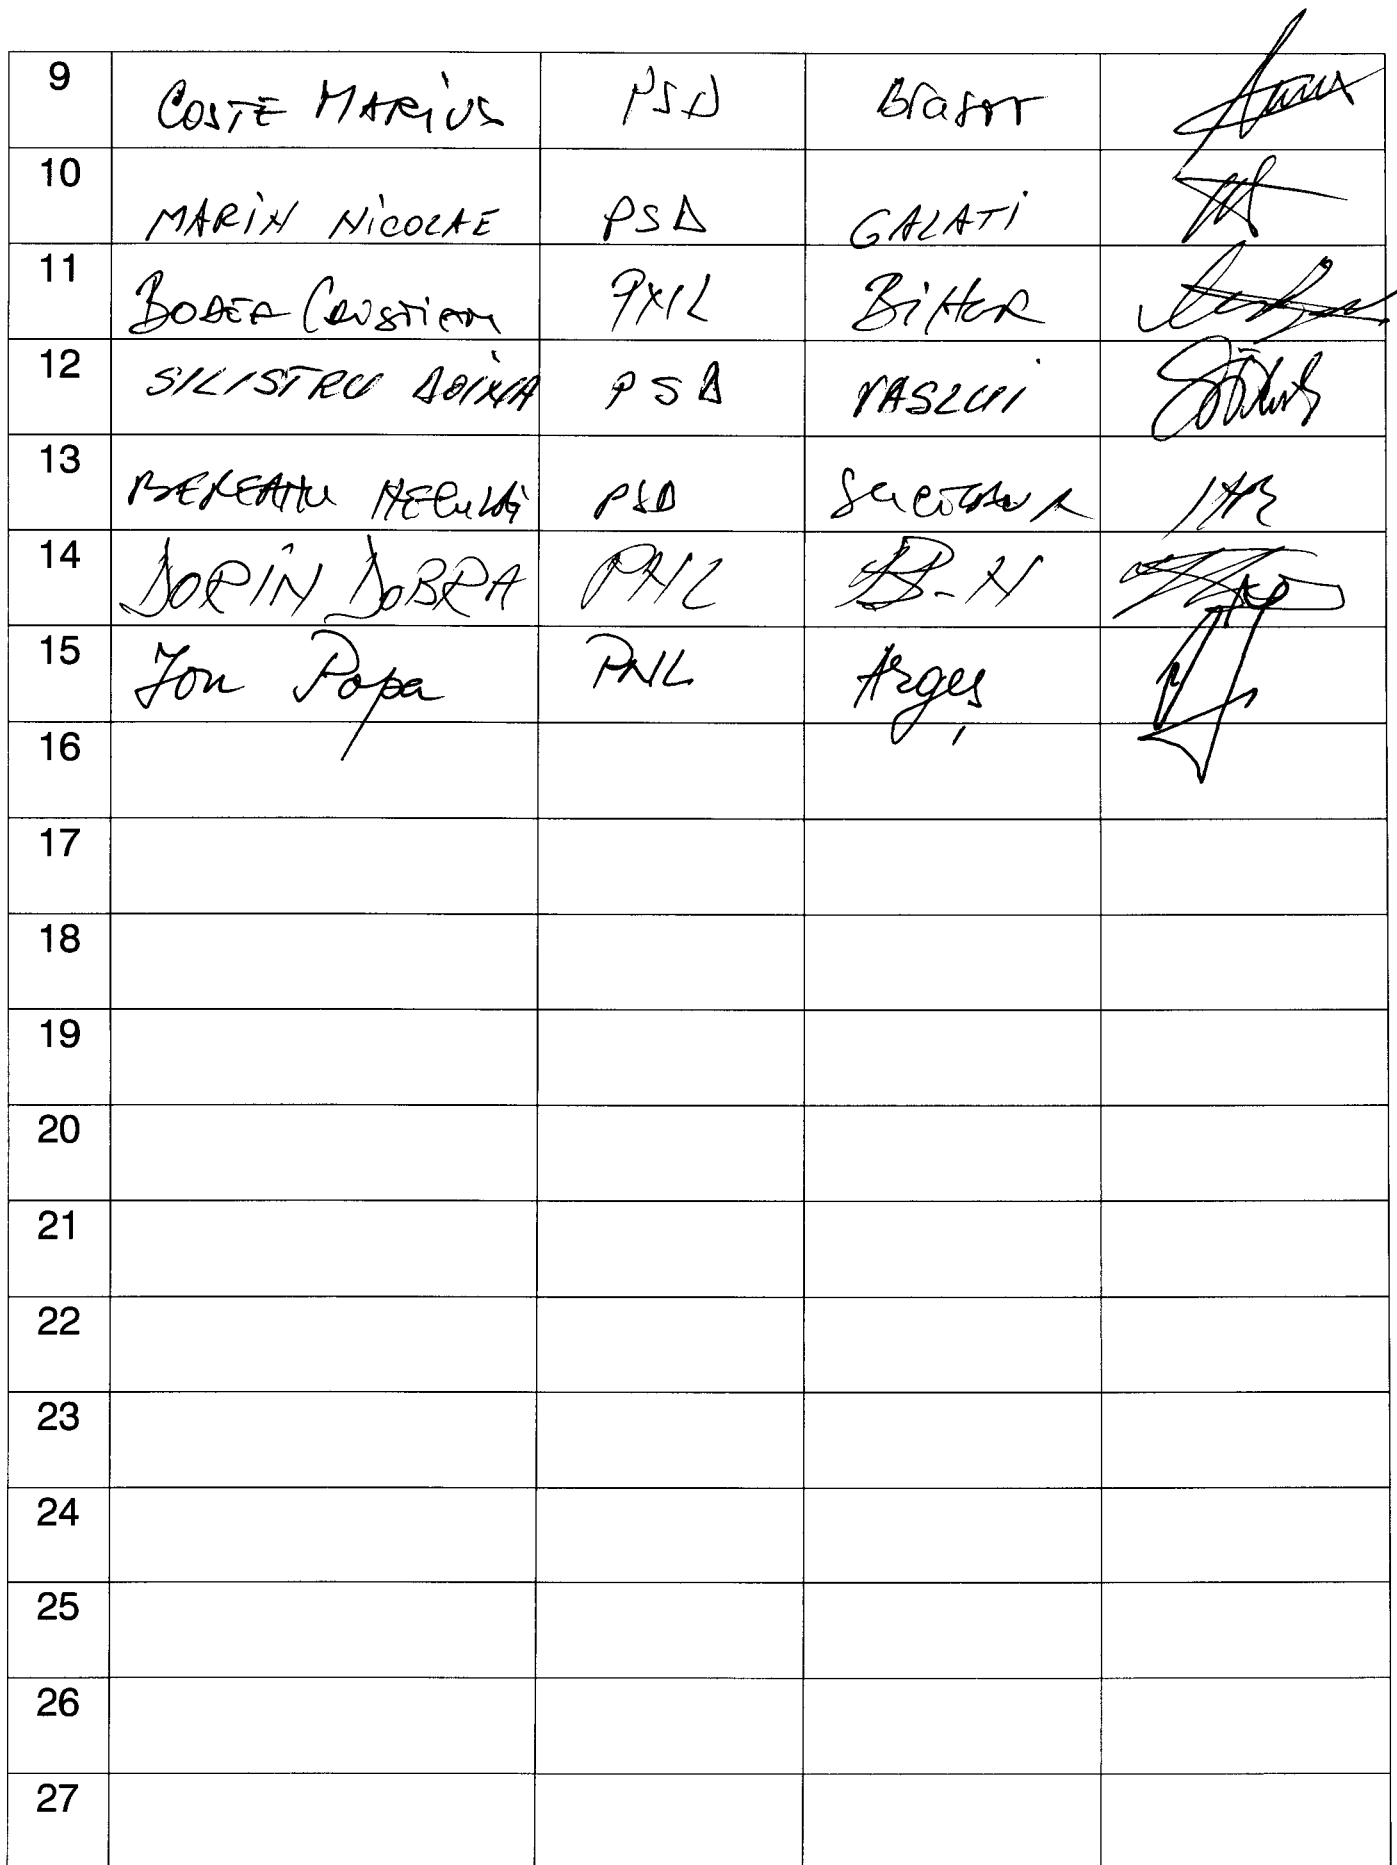 9 COSTE MARIUS PSD Brașov
10 MARIN NICOLAE PSD GALATI
11 BODEA CRISTIAN PNL BIHOR
12 SILISTRU DOINA PSD VASLUI
13 BEREANU NECULAI PSD SUCEAVA
14 DORIN DOBRA PNL B-N
15 Ion Popa PNL Argeș
16
17
18
19
20
21
22
23
24
25
26
27